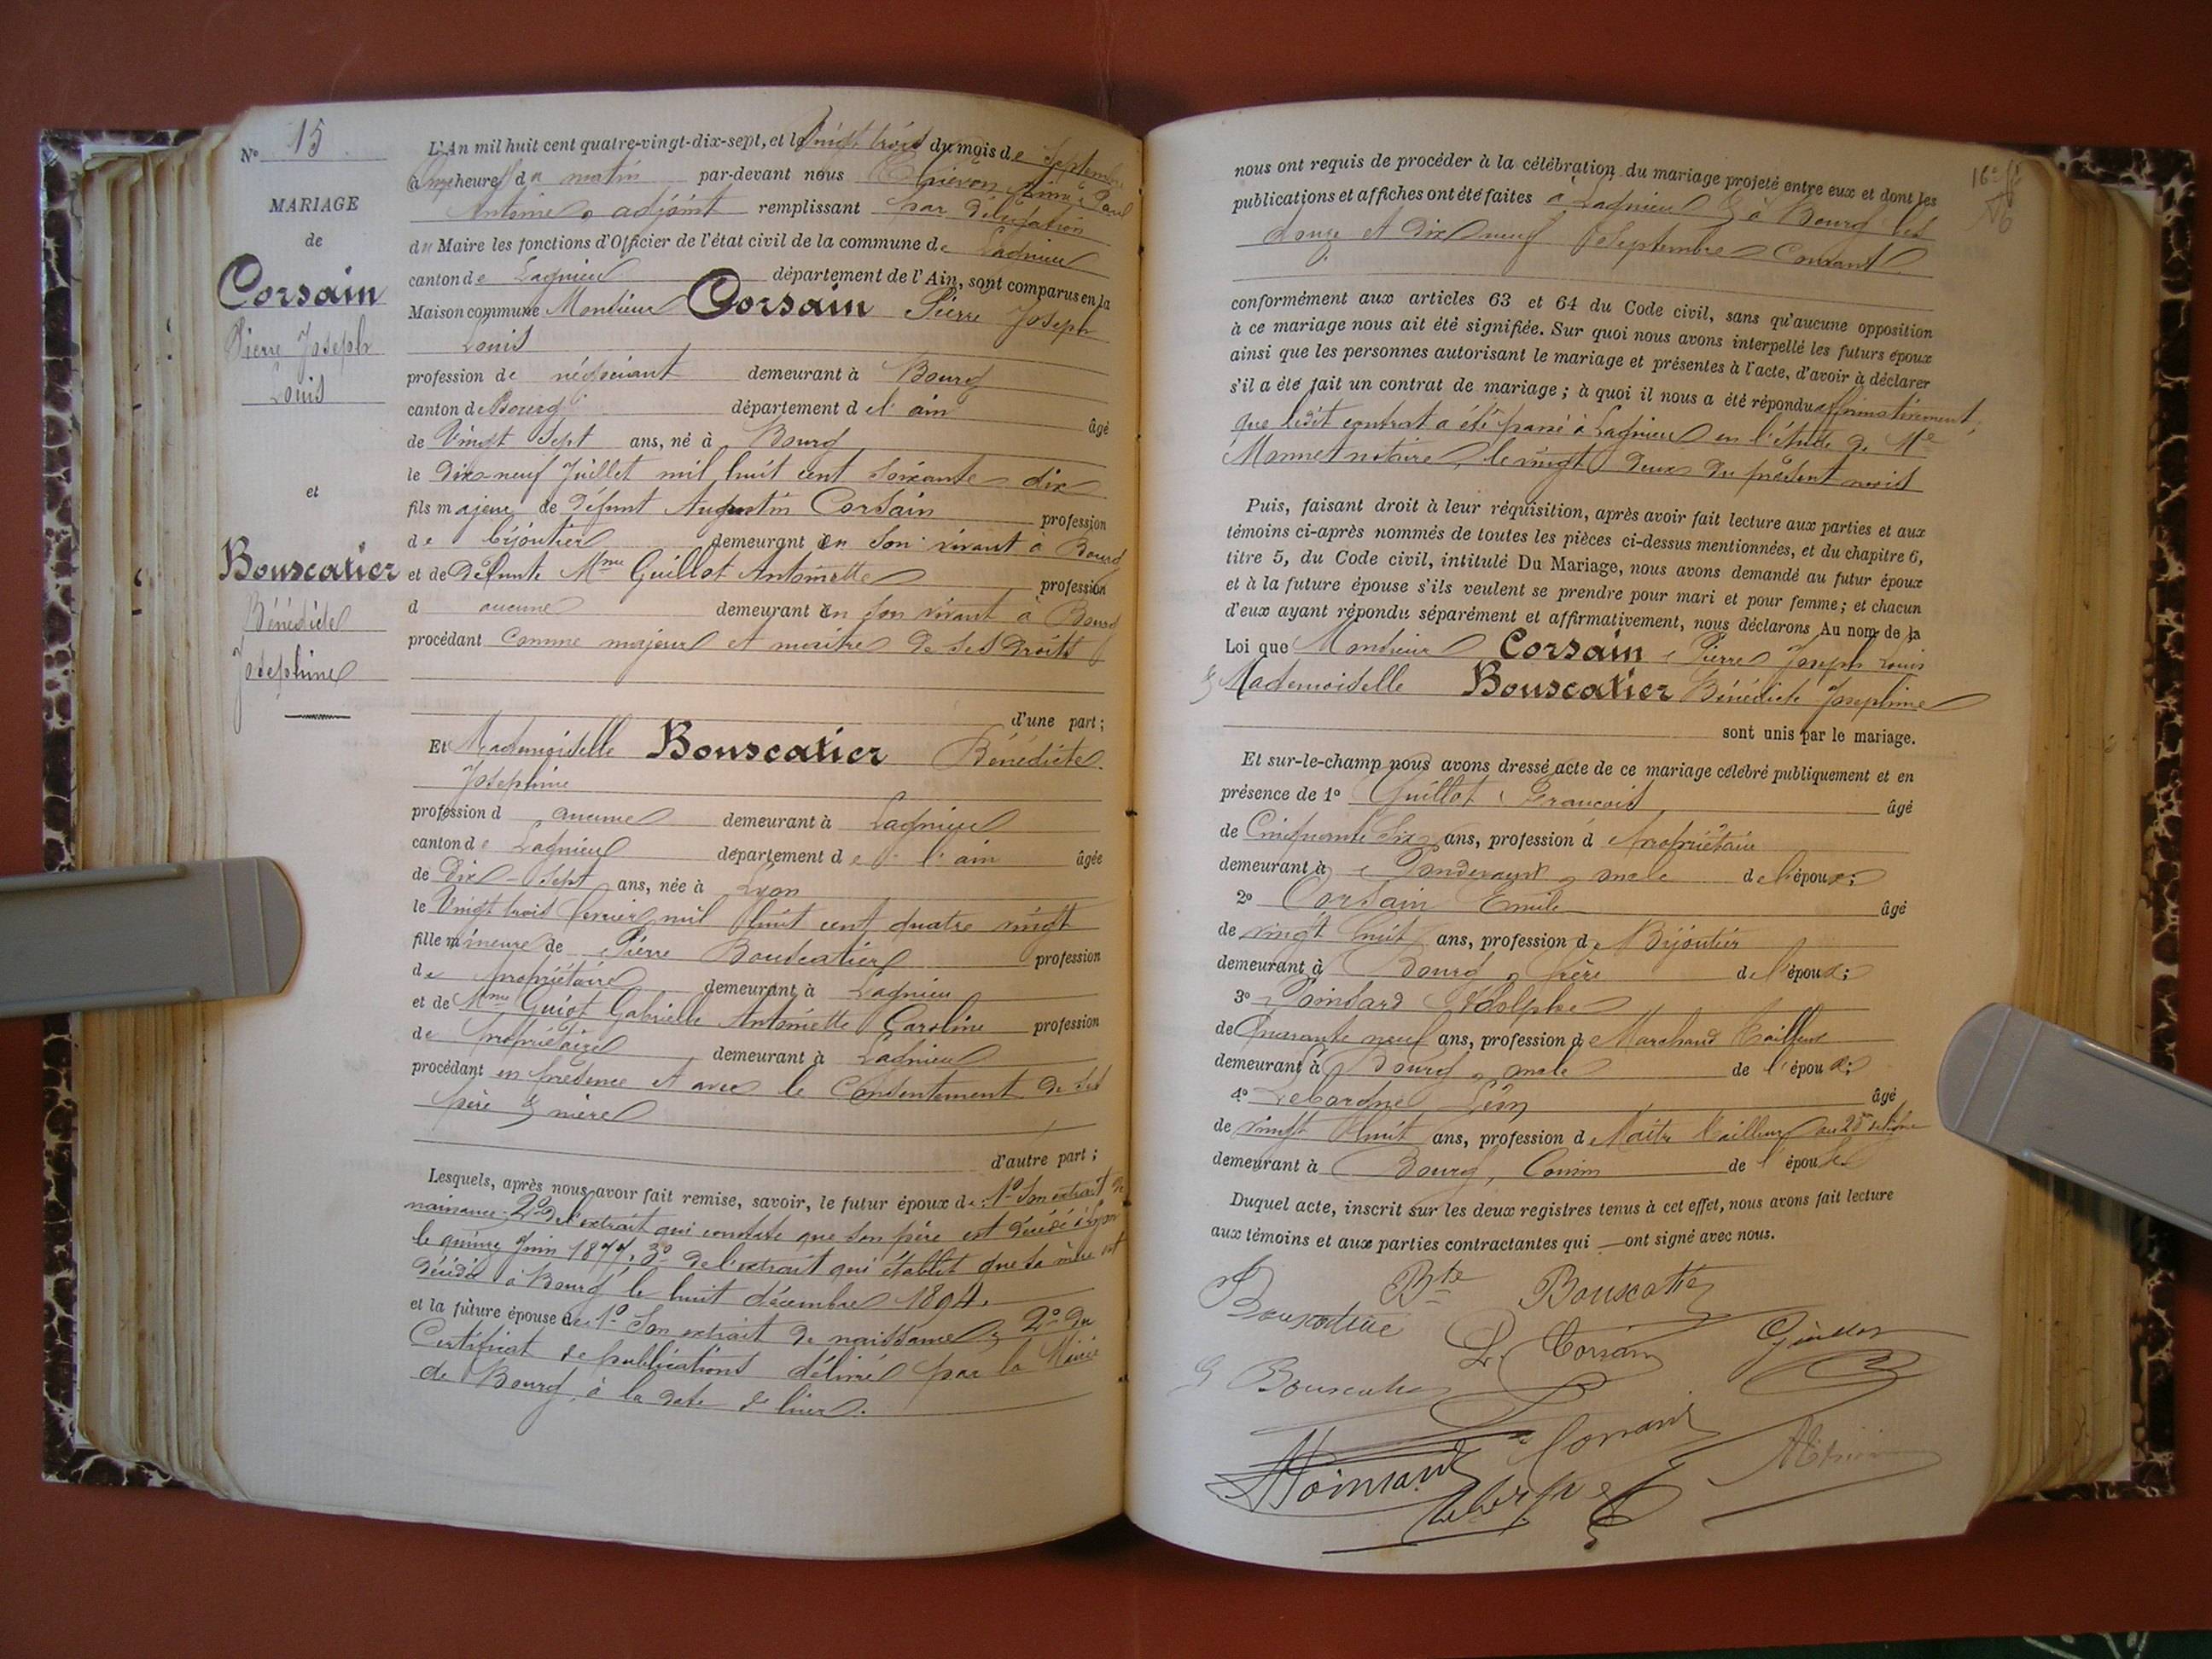 N° 15
MARIAGE
de
Corsain
Pierre Joseph
Louis
et
Bouscatier
Bénédicte
Joséphine
L'An mil huit cent quatre-vingt-dix-sept, et le Vingt trois du mois de Septembre
à onze heures du matin par-devant nous Aimé Paul
Antoine, adjoint remplissant par délégation
du Maire les fonctions d'Officier de l'état civil de la commune de Lagnieu
canton de Lagnieu département de l'Ain, sont comparus en la
Maison commune Monsieur Corsain Pierre Joseph
Louis
profession de négociant demeurant à Bourg
canton de Bourg département de l'ain âgé
de Vingt Sept ans, né à Bourg
le dix-neuf Juillet mil huit cent soixante-dix
fils majeur de défunt Augustin Corsain profession
de bijoutier demeurant en son vivant à Bourg
et de Défunte Mme Guillot Antoinette profession
d aucune demeurant en son vivant à Bourg
procédant comme majeur et maître de ses droits
d'une part;
Et Mademoiselle Bouscatier Bénédicte
Joséphine
profession d aucune demeurant à Lagnieu
canton de Lagnieu département de l'ain âgée
de Dix-Sept ans, née à Lyon
le Vingt trois février mil huit cent quatre vingt
fille mineure de Pierre Bouscatier profession
de propriétaire demeurant à Lagnieu
et de Mme Guiot Gabrielle Antoinette Caroline profession
de propriétaire demeurant à Lagnieu
procédant en présence et avec le Consentement de ses
père & mère
d'autre part;
Lesquels, après nous avoir fait remise, savoir, le futur époux de 1° Son extrait de
naissance, 2° de l'extrait qui constate que son père est décédé à Lyon
le quinze Juin 1877, 3° de l'extrait qui établit que sa mère est
décédée à Bourg le huit décembre 1894.
et la future épouse de 1° Son extrait de naissance, 2° du
Certificat de publications délivré par la Mairie
de Bourg, à la date de hier.
16e
nous ont requis de procéder à la célébration du mariage projeté entre eux et dont les
publications et affiches ont été faites à Lagnieu & à Bourg les
douze et Dix neuf Septembre Courant.
conformément aux articles 63 et 64 du Code civil, sans qu'aucune opposition
à ce mariage nous ait été signifiée. Sur quoi nous avons interpellé les futurs époux
ainsi que les personnes autorisant le mariage et présentes à l'acte, d'avoir à déclarer
s'il a été fait un contrat de mariage; à quoi il nous a été répondu affirmativement,
que ledit contrat a été passé à Lagnieu en l'étude de Me
Monnet notaire, le vingt deux du présent mois
Puis, faisant droit à leur réquisition, après avoir fait lecture aux parties et aux
témoins ci-après nommés de toutes les pièces ci-dessus mentionnées, et du chapitre 6,
titre 5, du Code civil, intitulé Du Mariage, nous avons demandé au futur époux
et à la future épouse s'ils veulent se prendre pour mari et pour femme; et chacun
d'eux ayant répondu séparément et affirmativement, nous déclarons Au nom de la
Loi que Monsieur Corsain Pierre Joseph Louis
& Mademoiselle Bouscatier Bénédicte Joséphine
sont unis par le mariage.
Et sur-le-champ nous avons dressé acte de ce mariage célébré publiquement et en
présence de 1° Guillot François âgé
de Cinquante Six ans, profession d Propriétaire
demeurant à oncle de l'époux;
2° Corsain Emile âgé
de vingt huit ans, profession de Bijoutier
demeurant à Bourg, frère de l'époux;
3° Poinsard Adolphe
de Quarante neuf ans, profession de Marchand tailleur
demeurant à Bourg, oncle de l'époux;
4° Léon âgé
de vingt huit ans, profession de Maître tailleur au 23e de ligne
demeurant à Bourg, Cousin de l'épouse
Duquel acte, inscrit sur les deux registres tenus à cet effet, nous avons fait lecture
aux témoins et aux parties contractantes qui ont signé avec nous.
Bte Bouscatier
Bouscatier L. Corsain Guillot
G Bouscatier
Corsain
A Poinsard